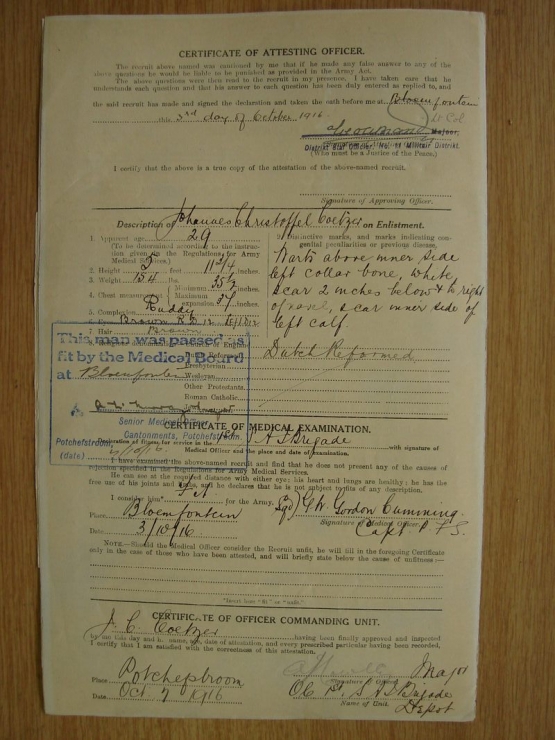 CERTIFICATE OF ATTESTING OFFICER.
The recruit above named was cautioned by me that if he made any false answer to any of the
above questions he would be liable to be punished as provided in the Army Act.
The above questions were then read to the recruit in my presence. I have taken care that he
understands each question and that his answer to each question has been duly entered as replied to, and
the said recruit has made and signed the declaration and taken the oath before me at Bloemfontein
this 3rd day of October 1916
Lt Col
Major,
District Staff Officer, No. Military District.
(Who must be a Justice of the Peace.)
I certify that the above is a true copy of the attestation of the above-named recruit.
Signature of Approving Officer.
Description of Johannes Christoffel Coetzer on Enlistment.
1. Apparent age 29
(To be determined according to the instruc-
tion given in the Regulations for Army
Medical Services.)
2. Height 5 feet 11 inches
3. Weight 154 lbs.
4. Chest measurement Minimum 35½ inches
Maximum expansion 37 inches
5. Completion Ruddy
6. Eyes Brown
7. Hair Brown
9. Distinctive marks, and marks indicating con-
genital peculiarities or previous disease.
Warts above inner side
left collar bone, white
scar 2 inches below & to right
of navel, scar inner side of
left calf.
Church of England
Dutch Reformed Dutch Reformed
Presbyterian
Wesleyan
Other Protestants
Roman Catholic
This man was passed as
fit by the Medical Board
at Bloemfontein
Senior Medical Officer
Cantonments, Potchefstroom.
Potchefstroom,
(date)
CERTIFICATE OF MEDICAL EXAMINATION.
Declaration of fitness for service in the 1st S A I Brigade with signature of
Medical Officer and the place and date of examination.
I have examined the above-named recruit and find that he does not present any of the causes of
rejection specified in the Regulations for Army Medical Services.
He can see at the required distance with either eye; his heart and lungs are healthy; he has the
free use of his joints and limbs, and he declares that he is not subject to fits of any description.
I consider him* Fit for the Army.
Place Bloemfontein
Date 3/10/16
Sgd) G W Gordon Cumming
Signature of Medical Officer.
Capt
NOTE.—Should the Medical Officer consider the Recruit unfit, he will fill in the foregoing Certificate
only in the case of those who have been attested, and will briefly state below the cause of unfitness:—
*Insert here "fit" or "unfit."
CERTIFICATE OF OFFICER COMMANDING UNIT.
J. C. Coetzer having been finally approved and inspected
by me this day and his name, age, date of attestation, and every prescribed particular having been recorded,
I certify that I am satisfied with the correctness of this attestation.
Place Potchefstroom
Date Oct 7 1916
Major
Signature of Officer
O/C 1st S A I Brigade
Name of Unit.
Depot